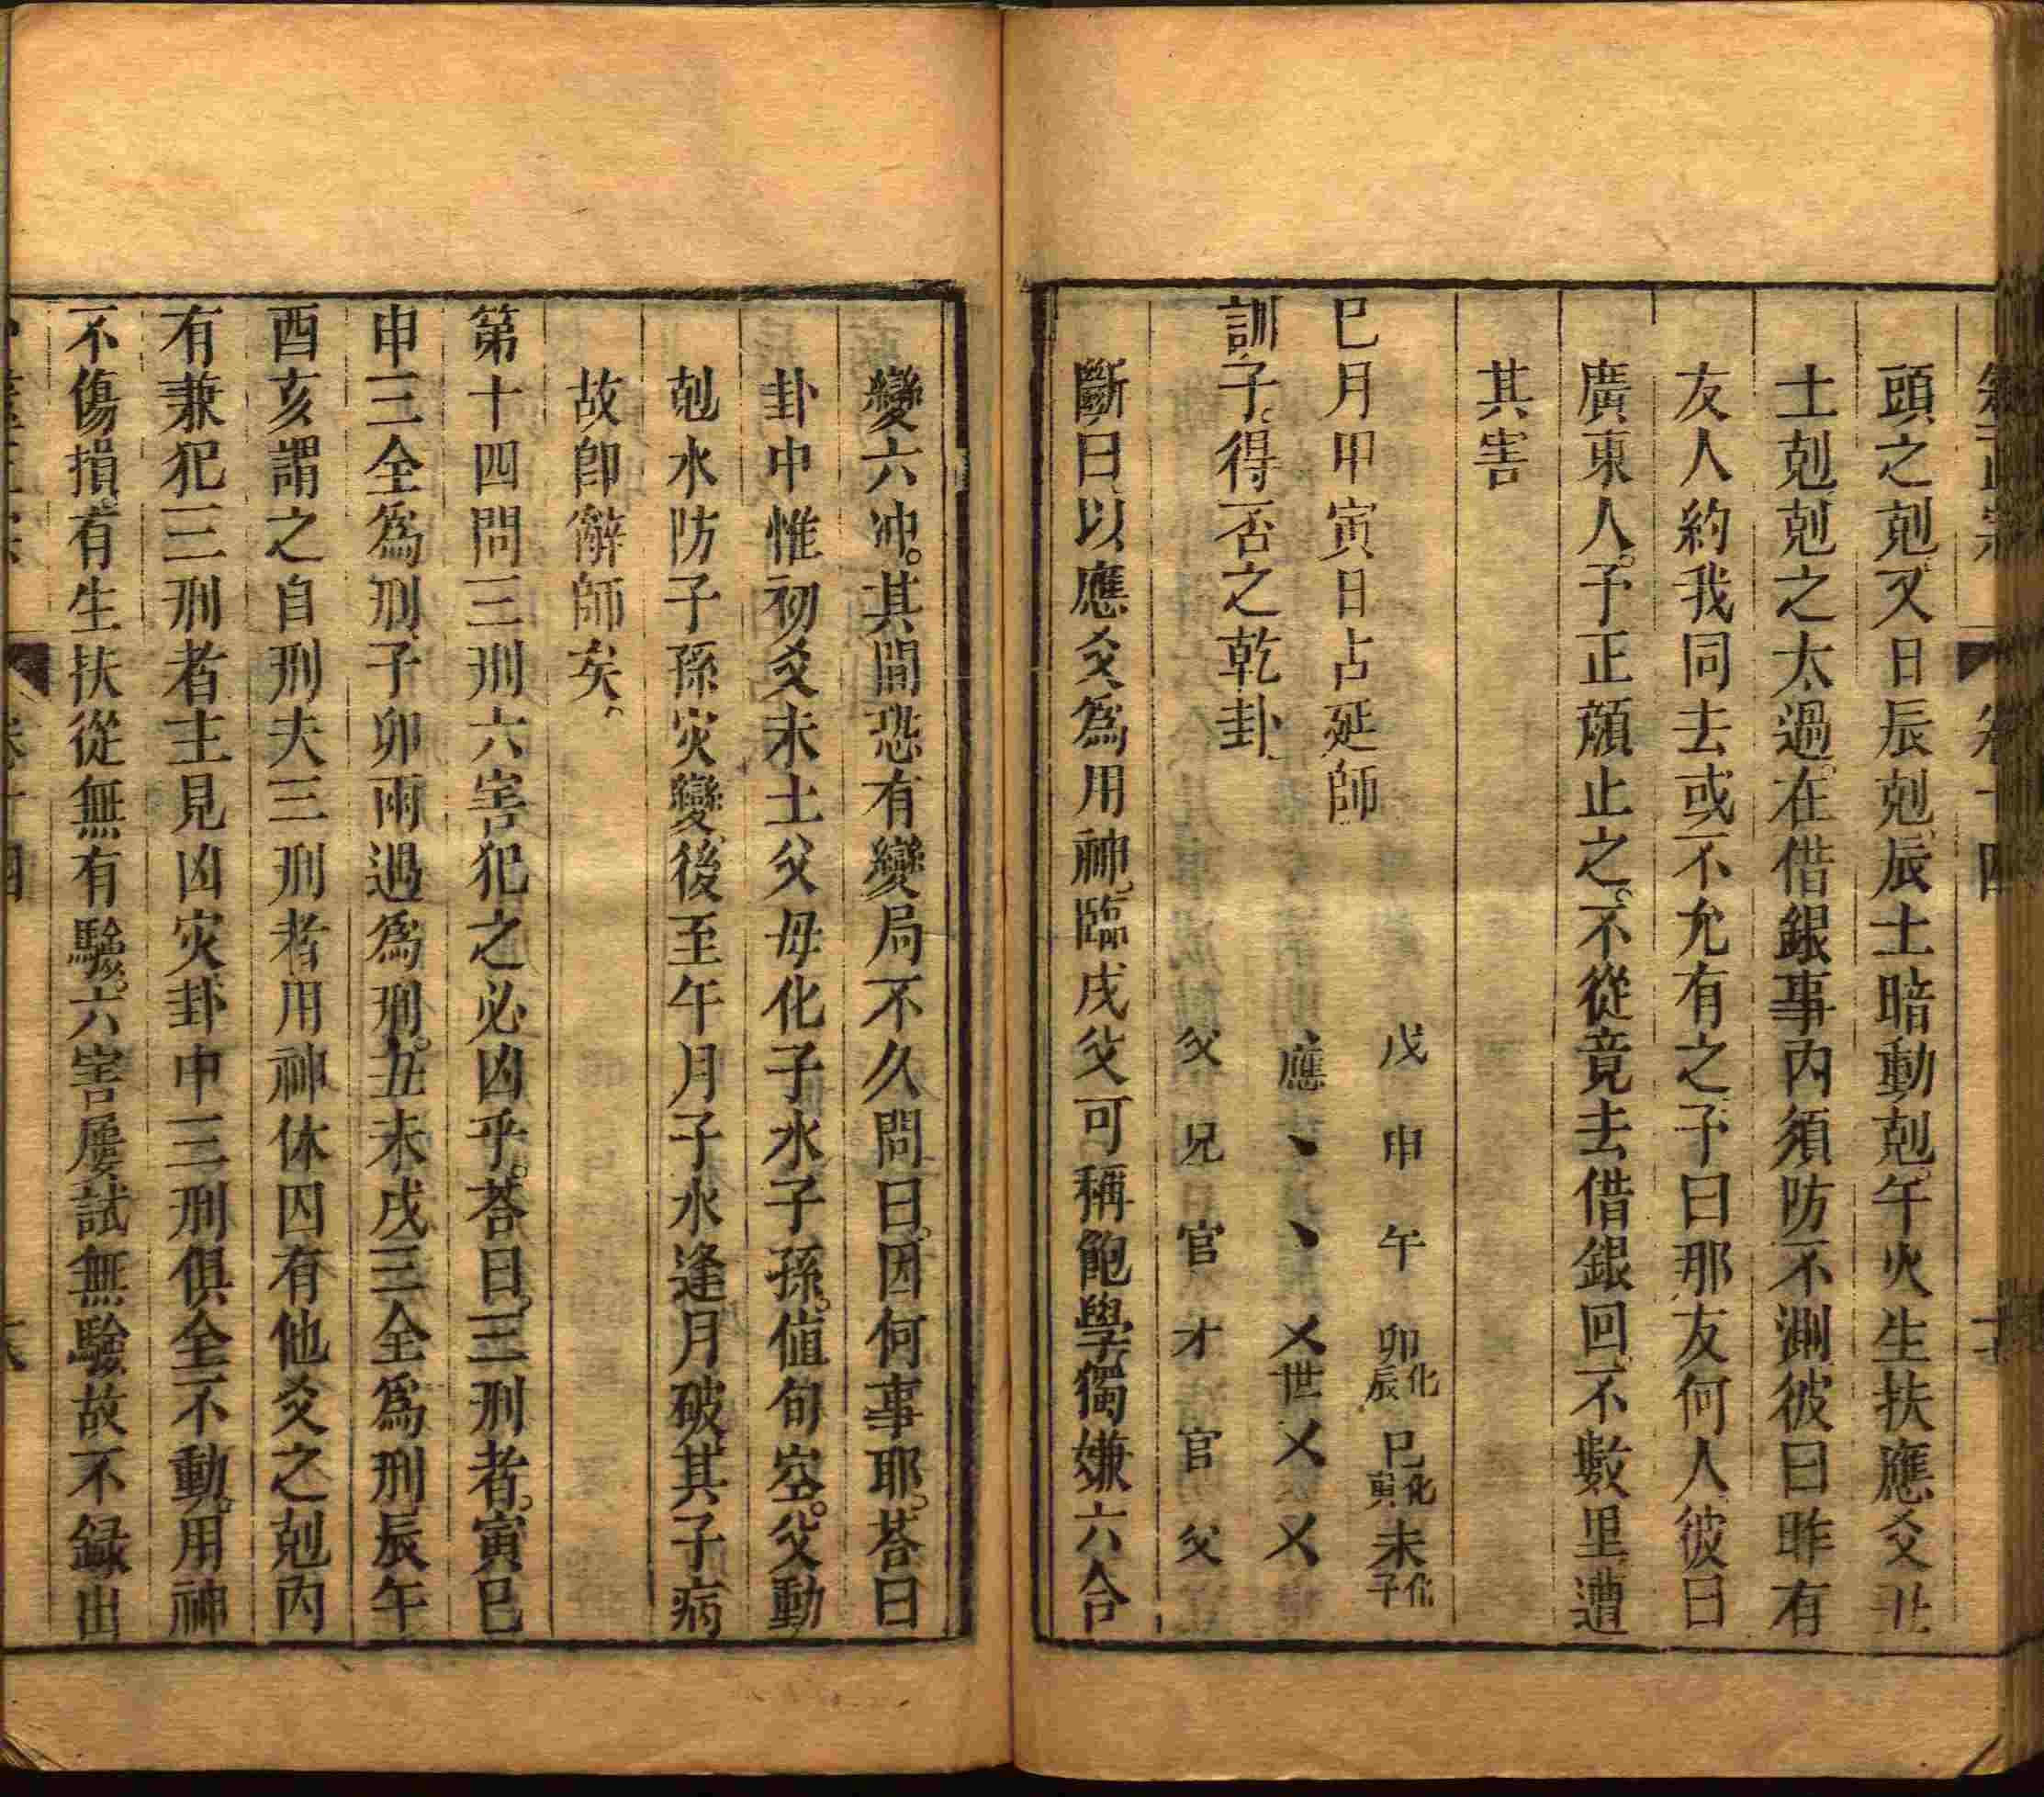 頭之剋又日辰剋辰土暗動剋。午火生扶應爻丑
土剋剋之太過。在借銀事內須防不測彼曰昨有
友人約我同去或不允有之予曰那友何人彼曰
廣東人。予正顏止之。不從竟去借銀回不數里遭
其害
巳月甲寅日占延師
訓子。得否之乾卦
戊 申 午 卯化辰 巳化寅 未化子
應 丶 丶 乂世 乂 乂
父 兄 官 才 官 父
斷曰以應爻爲用神。臨戌父可稱飽學獨嫌六合
變六冲。其間恐有變局不久問曰。因何事耶。荅曰
卦中惟初爻未土父母化子水子孫。值旬空。父動
剋水防子孫灾變後至午月子水逢月破其子病
故卽辭師矣。
第十四問三刑六害犯之必凶乎。荅曰。三刑者。寅巳
申三全爲刑子卯兩遇爲刑。丑未戌三全爲刑辰午
酉亥謂之自刑夫三刑者用神休囚有他爻之剋內
有兼犯三刑者主見凶灾卦中三刑俱全不動。用神
不傷損。有生扶從無有驗。六害屢試無驗故不録出